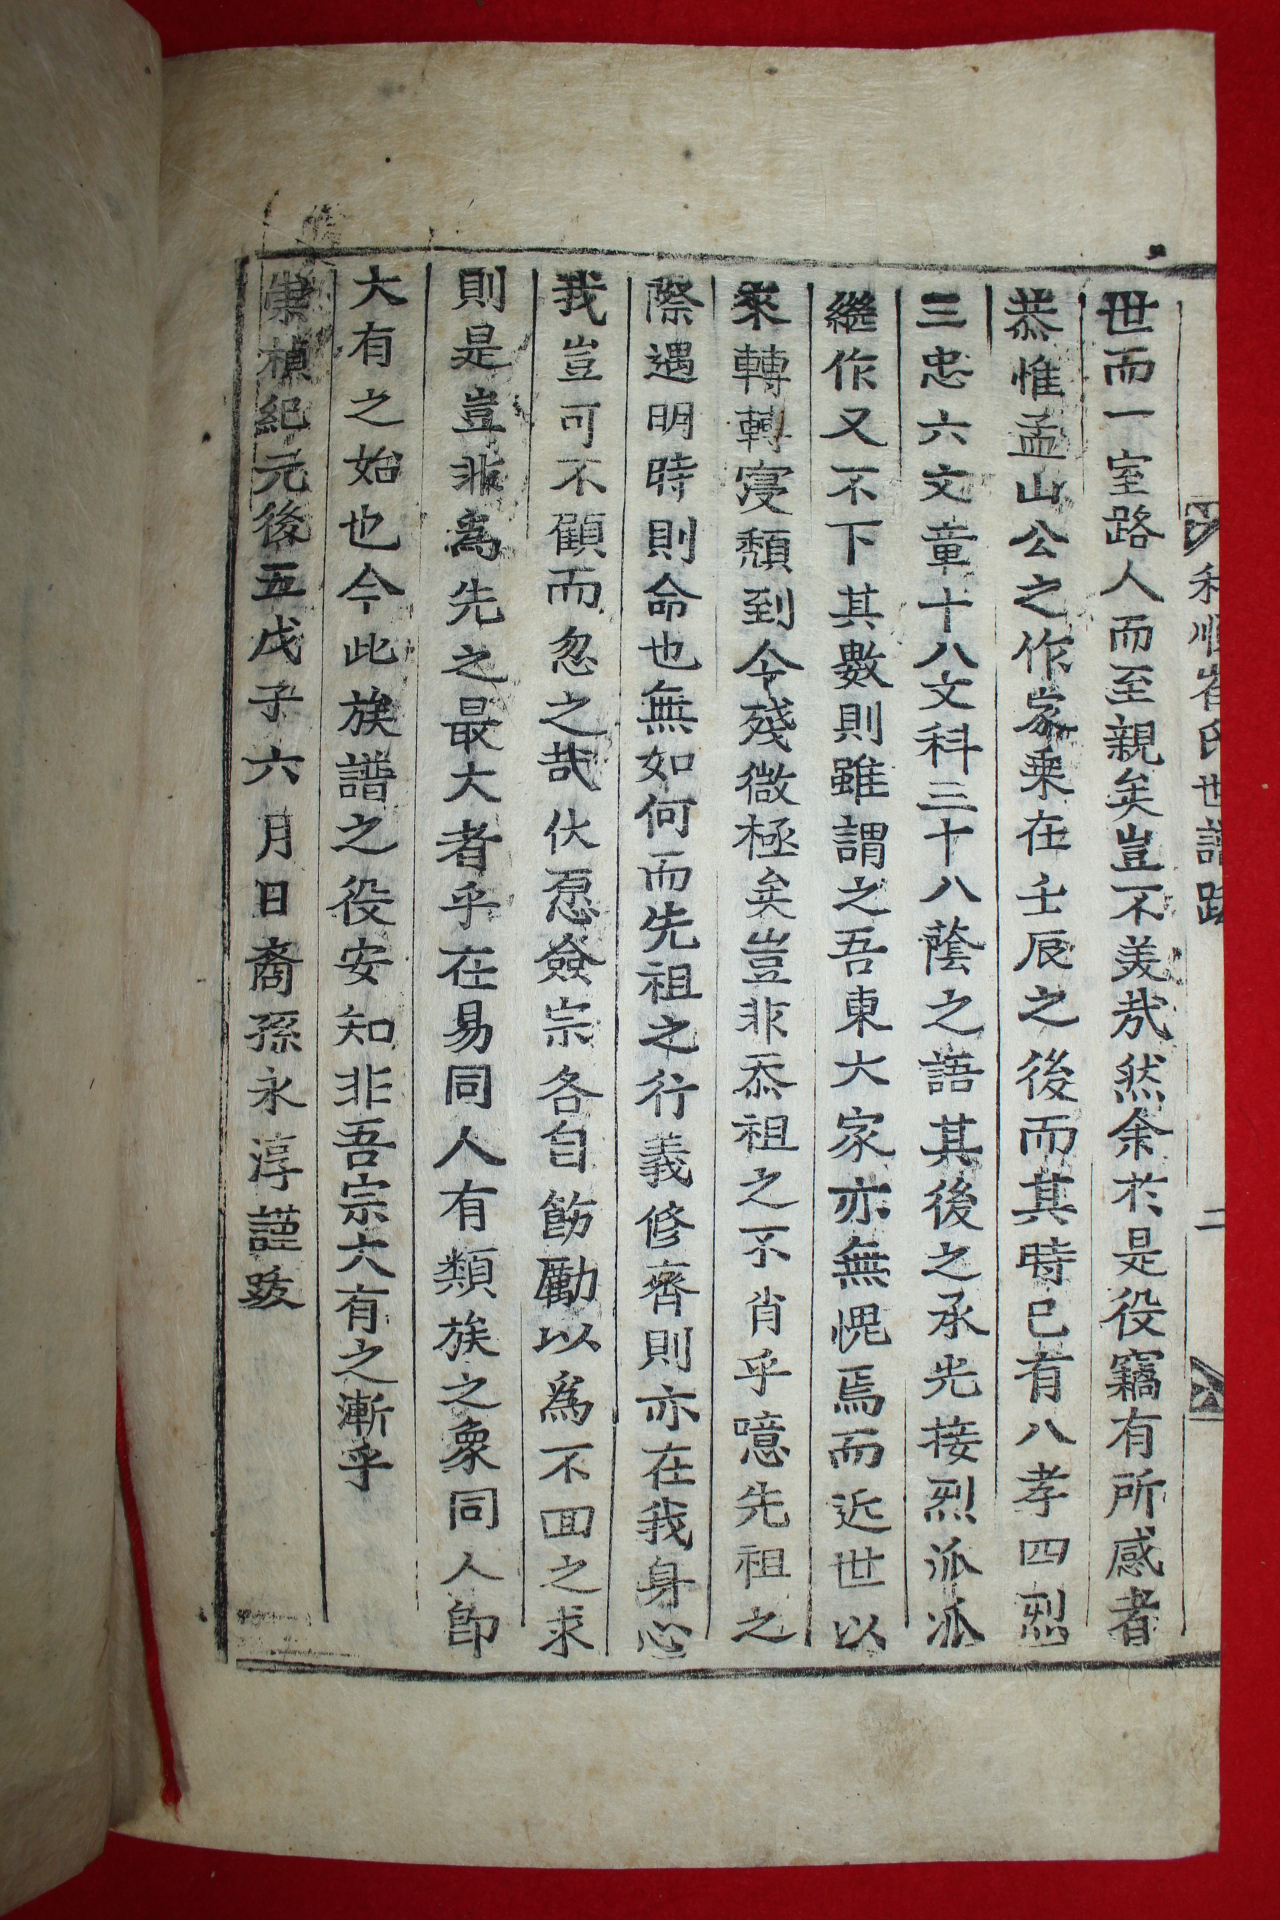 世而一室路人而至親矣豈不美哉然余於是役竊有所感者
恭惟孟山公之作家乗在壬辰之後而其時已有八孝四烈
三忠六文章十八文科三十八蔭之語其後之承先接烈派派
継作又不下其數則雖謂之吾東大家亦無愧焉而近世以
來轉轉寖頽到今殘微極矣豈非忝祖之不肖乎噫先祖之
際遇明時則命也無如何而先祖之行義修齊則亦在我身心
我豈可不顧而忽之哉伏愿僉宗各自飭勵以爲不回之求
則是豈非為先之最大者乎在易同人有類族之象同人卽
大有之始也今此族譜之役安知非吾宗大有之漸乎
崇禎紀元後五戊子六月日裔孫永淳謹跋
和順崔氏世譜跋 二